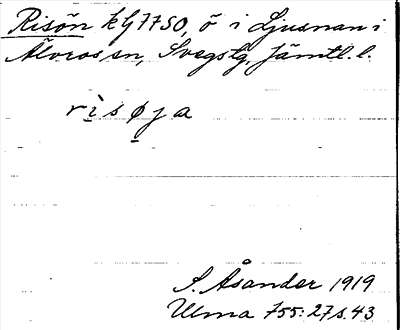 Risön k G7750, ö i Ljusnan i
Älvros sn, Svegs tg, Jämtl. l.
rìsøja
S. Åsander 1919
Ulma 755:27 s. 43